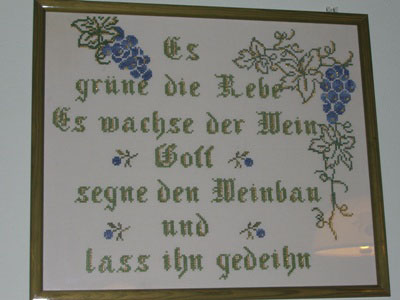 Es
grüne die Rebe
Es wachse der Wein
Gott
segne den Weinbau
und
lass ihn gedeihn